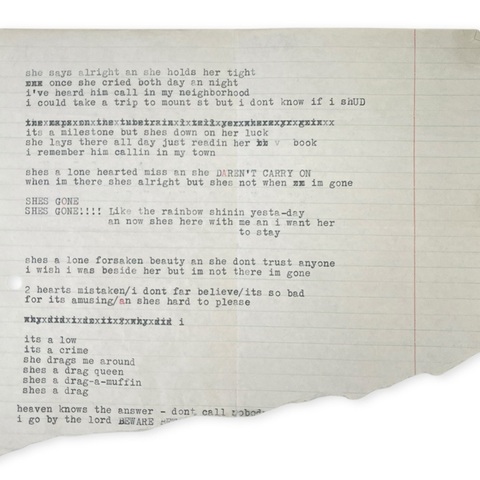 she says alright an she holds her tight
once she cried both day an night
i've heard him call in my neighborhood
i could take a trip to mount st but i dont know if i shUD
its a milestone but shes down on her luck
she lays there all day just readin her v book
i remember him callin in my town
shes a lone hearted miss an she DAREN'T CARRY ON
when im there shes alright but shes not when im gone
SHES GONE
SHES GONE!!!! Like the rainbow shinin yesta-day
an now shes here with me an i want her
to stay
shes a lone forsaken beauty an she dont trust anyone
i wish i was beside her but im not there im gone
2 hearts mistaken/i dont far believe/its so bad
for its amusing/an shes hard to please
i
its a low
its a crime
she drags me around
shes a drag queen
shes a drag-a-muffin
shes a drag
heaven knows the answer - dont call nobod
i go by the lord BEWARE